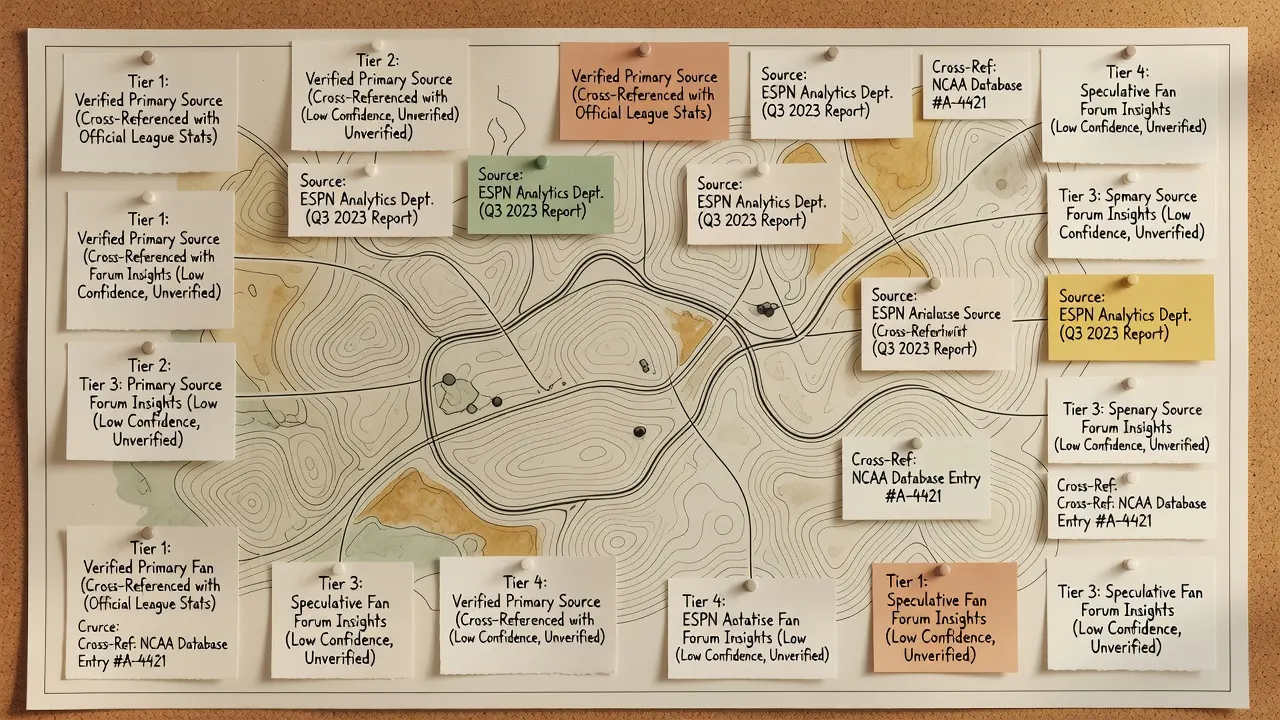 Tier 1:
Verified Primary Source
(Cross-Referenced with
Official League Stats)
Tier 2:
Verified Primary Source
(Cross-Referenced with
(Low Confidence, Unverified)
Unverified)
Verified Primary Source
(Cross-Referenced with
Official League Stats)
Source:
ESPN Analytics Dept.
(Q3 2023 Report)
Cross-Ref:
NCAA Database
#A-4421
Tier 4:
Speculative Fan
Forum Insights
(Low Confidence, Unverified)
Source:
ESPN Analytics Dept.
(Q3 2023 Report)
Source:
ESPN Analytics Dept.
(Q3 2023 Report)
Source:
ESPN Analytics Dept.
(Q3 2023 Report)
Tier 3: Spmary Source
Forum Insights (Low
Confidence, Unverified)
Tier 1:
Verified Primary Source
(Cross-Referenced with
Forum Insights (Low
Confidence, Unverified)
Source:
ESPN Source
(Q3 2023 Report)
Source:
ESPN Analytics Dept.
(Q3 2023 Report)
Tier 2:
Tier 3: Primary Source
Forum Insights (Low
(Low Confidence,
Unverified)
Tier 3: Spenary Source
Forum Insights
(Low Confidence, Unverified)
Cross-Ref:
NCAA Database Entry
#A-4421
Cross-Ref:
Cross-Ref: NCAA Database
Entry #A-4421
Tier 1:
Verified Primary Fan
(Cross-Referenced with
(Official League Stats)
Crurce:
Cross-Ref: NCAA Database
Entry #A-4421
Tier 3:
Speculative Fan
Forum Insights
(Low Confidence,
Unverified)
Tier 4:
Verified Primary Source
(Cross-Referenced with
(Low Confidence, Unverified)
Tier 4:
ESPN Fan
Forum Insights (Low
(Low Confidence, Unverified)
Tier 1:
Speculative Fan
Forum Insights
(Low Confidence,
Unverified)
Tier 3: Speculative Fan
Forum Insights
(Low Confidence,
Unverified)